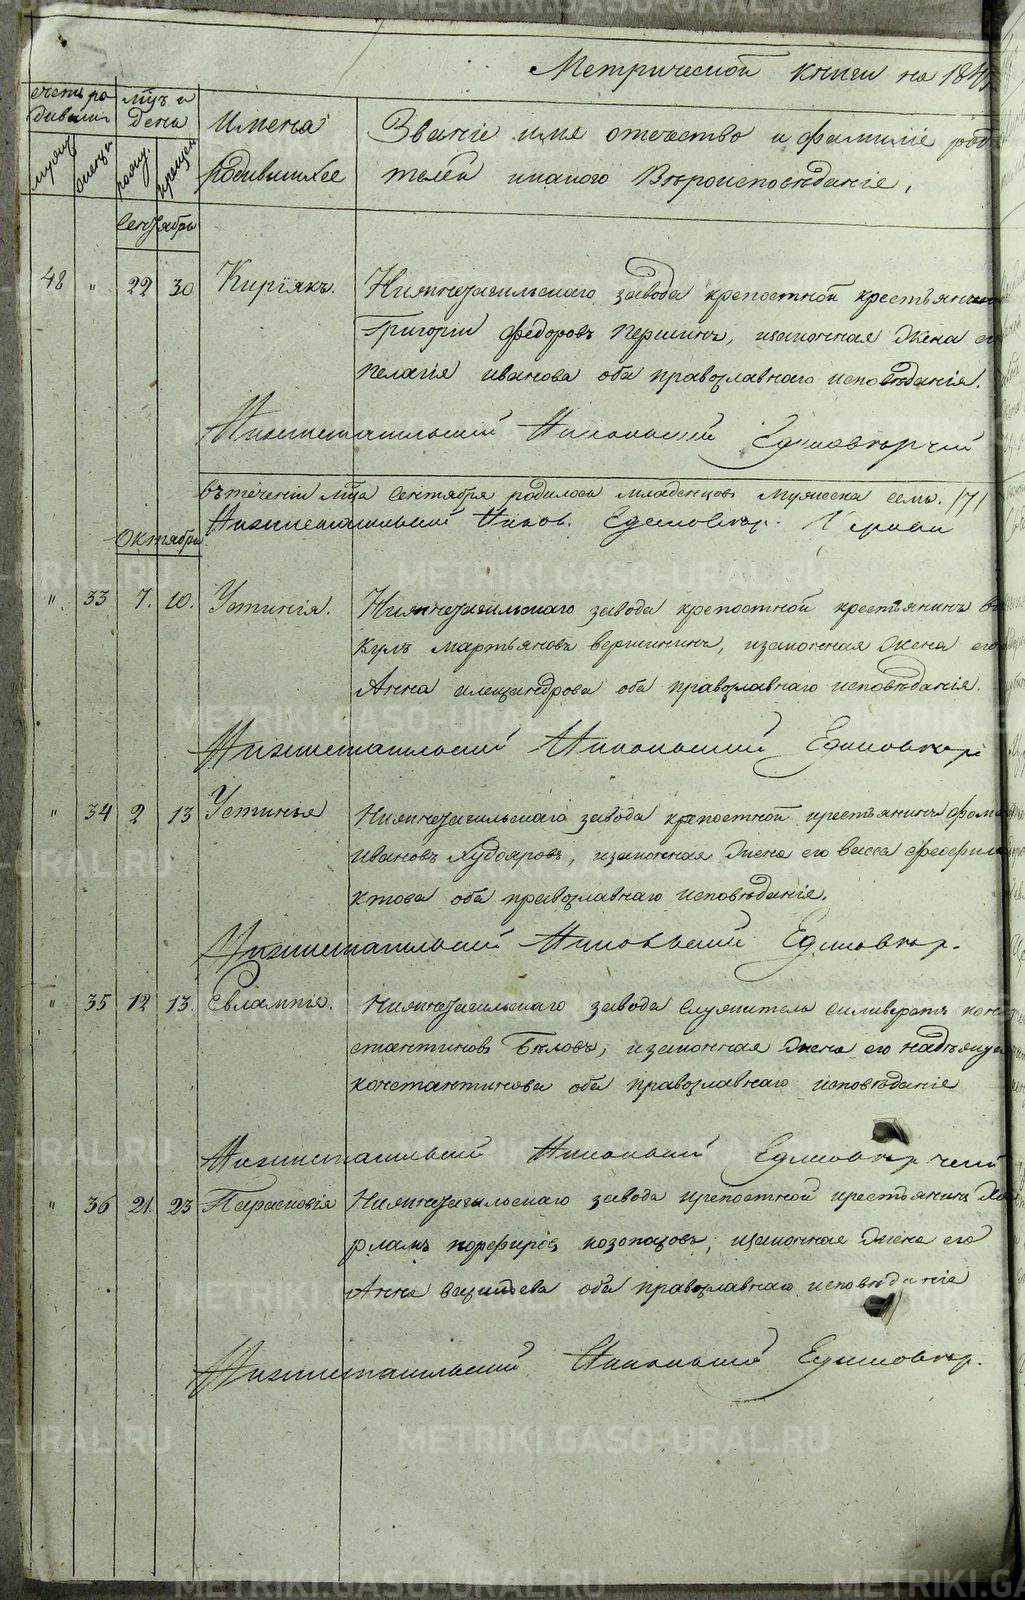 Метрической книги на 184
счетъ ро
дивших
муж.
женск.
мц̃ъ и
день
рожд.
крещен.
Имена
родившихсе
Званіе имя отечество и фамиліе род
телей икакого Вѣроисповѣданіе,
Сентября
48 " 22 30 Киріякъ. Нижнетагильскаго завода крепостной крестьянинъ
Григорій Федоровъ Першинъ, изаконная Жена его
Пелагія иванова оба православнаго исповѣданія.
Нижнетагильский Никольский Единоверчий
Въ течении мц̃а Сентября родилось младенцовъ мужеска семь. /7/
Нижнетагильский Никол. Единовер. Церкви
Октября
" 33 7. 10. Устинія. Нижнетагильскаго завода крепостной крестьянинъ ви
кулъ мартьяновъ вершининъ, изаконная Жена его
Анна александрова оба православнаго исповѣданія.
Нижнетагильский Никольский Единовер
" 34 2 13 Устинья Нижнетагильскаго завода крепостной крестьянинъ фома
Ивановъ Худояровъ, изаконная Жена его Васса Феофила
ктова оба православнаго исповѣданіе.
Нижнетагильский Никольский Единовер.
" 35 12 13. Евлампія. Нижнетагильскаго завода служитель силиверстъ кон
стантиновъ Бѣловъ, изаконная Жена его надѣжда
константинова оба православнаго исповѣданіе
Нижнетагильский Никольский Единоверчий
" 36 21. 23 Парасковія Нижнетагильскаго завода крепостной крестьянинъ Ха
рламъ порфировъ козопасовъ, изаконная Жена его
Анна васильева оба православнаго исповѣданіе
Нижнетагильский Никольский Единовер.
METRIKI.GASO-URAL.RU